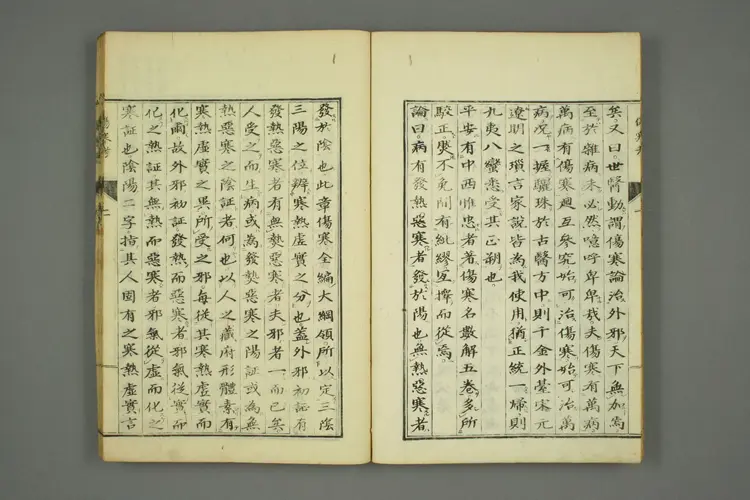 矣又曰世醫動謂傷寒論治外邪天下無加焉
至於雜病未必然噫呼卑卑哉夫傷寒有萬病
萬病有傷寒廻互參究始可治傷寒始可治萬
病况一握驪珠於古醫方中則千金外臺宋元
遼明之瑣言家說皆為我使用猶正統一歸則
九夷八蠻悉受其正朔也
平安有中西惟忠者著傷寒名數解五卷多所
駁正奧不免間有紕繆互擇而從焉
論曰病有發熱惡寒者發於陽也無熱惡寒者
發於陰也此章傷寒全編大綱領所以定三陰
三陽之位辨寒熱虛實之分也蓋外邪初証有
發熱惡寒者有無熱惡寒者夫邪者一而已矣
人受之而生病或為發熱惡寒之陽証或為無
熱惡寒之陰証者何也以人之臟府形體素有
寒熱虛實之異所受之邪每從其寒熱虛實而
化爾故外邪初証發熱而惡寒者邪氣從實而
化之熱証其無熱而惡寒者邪氣從虛而化之
寒証也陰陽二字指其人固有之寒熱虛實言
傷寒考
一